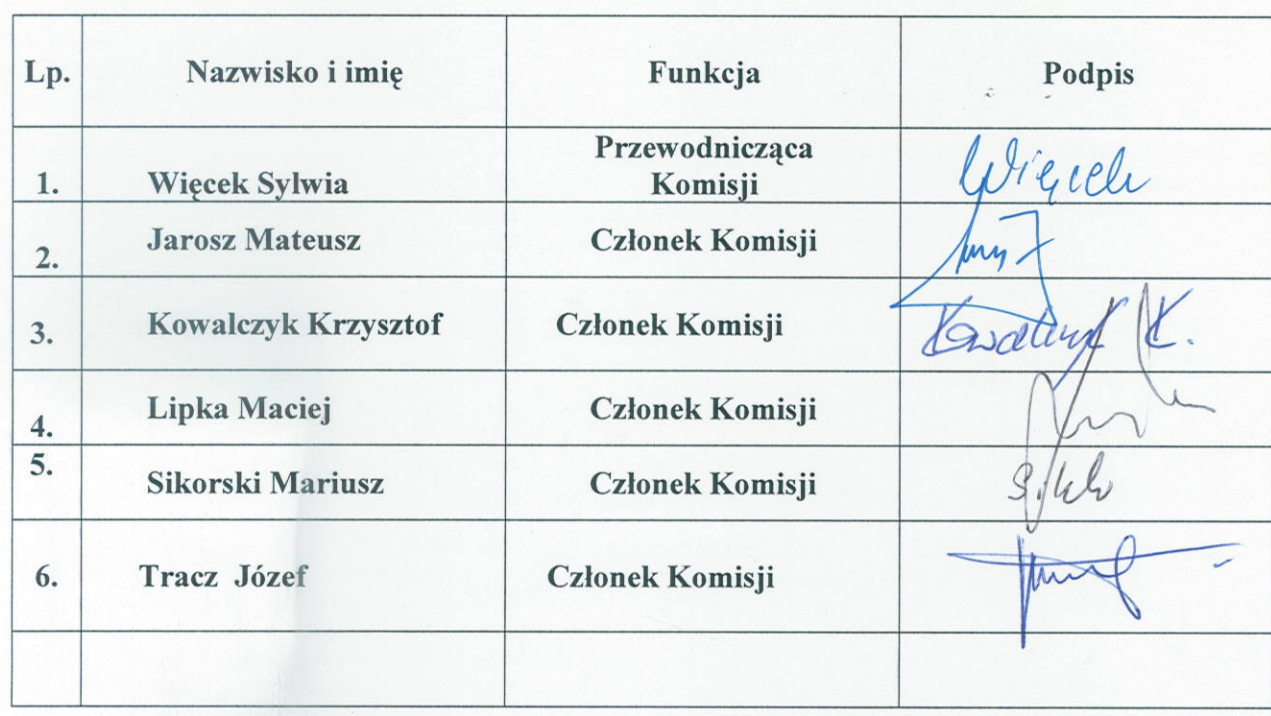 Lp. Nazwisko i imię Funkcja Podpis
Przewodnicząca
1. Więcek Sylwia Komisji Więcek
2. Jarosz Mateusz Członek Komisji
3. Kowalczyk Krzysztof Członek Komisji Kowalczyk K.
4. Lipka Maciej Członek Komisji
5. Sikorski Mariusz Członek Komisji
6. Tracz Józef Członek Komisji